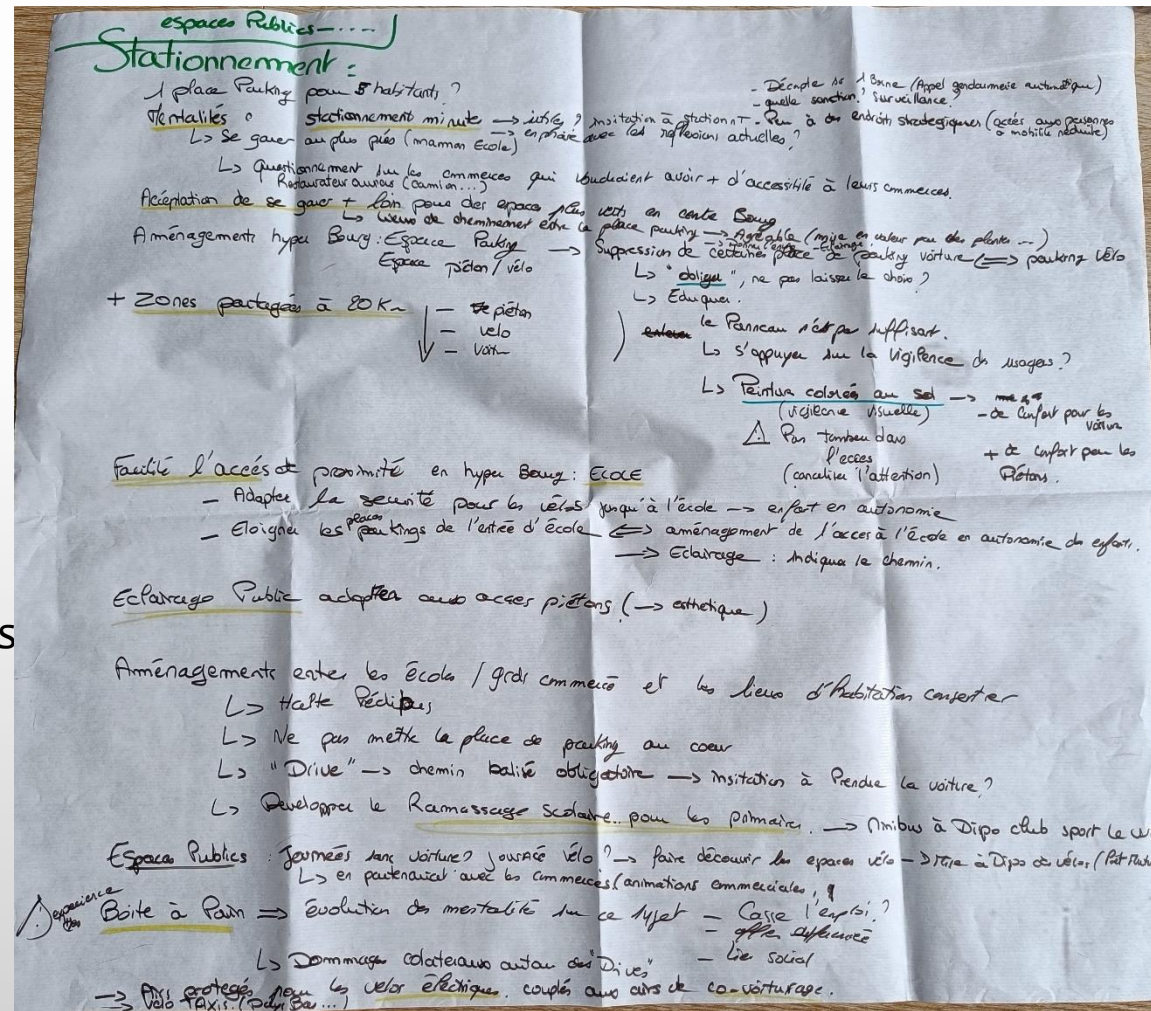 espaces Publics - ....
Stationnement :
1 place Parking pour 5 habitants ?
- Décompte de 1 Borne (Appel gendarmerie automatique)
- quelle sanction ? surveillance ?
Mentalités : stationnement minute → utiles ? insitation à stationnT - Peu à des endroits strategiques (accés aux personnes à mobilité réduite)
→ en phase avec les reflexions actuelles ?
↳ Se garer au plus prés (maman Ecole)
↳ Questionnement sur les commerces qui voudraient avoir + d'accessibilité à leurs commerces.
Restaurateur aussi (camion...)
Accéptation de se garer + loin pour des espaces plus verts en centre Bourg
↳ de cheminement entre la place parking → Agréable (mise en valeur par des plantes ...)
Aménagements hyper Bourg : Espace Parking → Suppression de certaines place de parking voiture ⟺ parking Vélo
Espace piéton / vélo
↳ "obliger", ne pas laisser le choix ?
↳ Eduquer.
+ Zones partagées à 20 Km
- piéton
- velo
- voiture
le Panneau n'est pas suffisant.
↳ s'appuyer sur la vigilence des usagers ?
↳ Peinture colorés au sol → - de confort pour les voiture
(vigilence visuelle)
+ de confort pour les Piétons.
⚠ Pas tomber dans l'excés
(canaliser l'attention)
Facilité l'accés de proximité en hyper Bourg : ECOLE
- Adapter la securité pour les vélos jusqu'à l'école → enfant en autonomie
- Eloigner les places parkings de l'entrée d'école ⟺ aménagement de l'acces à l'école en autonomie des enfants.
→ Eclairage : indiquer le chemin.
Eclairage Public adapter aux acces piétons (→ esthetique)
s
Aménagements entre les écoles / grds commerce et les lieux d'habitation
↳ Halte Pédibus
↳ Ne pas mettre la place de parking au coeur
↳ "Drive" → chemin balisé obligatoire → insitation à Prendre la voiture ?
↳ Developper le Ramassage scolaire pour les primaires. → Minibus à Dipo club sport le
Espaces Publics : Journées sans voitures ? Journée vélo ? → faire découvrir les espaces vélo → à Dipo des vélos
↳ en partenariat avec les commerces (animations commerciales,
⚠ experience des Boite à Pain ⟹ évolution des mentalité sur ce sujet - Casse l'emploi ?
- offre
- lien social
↳ Dommages colateraux autour des "Drives"
→ protegés pour les velos électriques, couplés aux airs de co-voiturage.
→ Vélo TAXIS (Pays Bas ...)